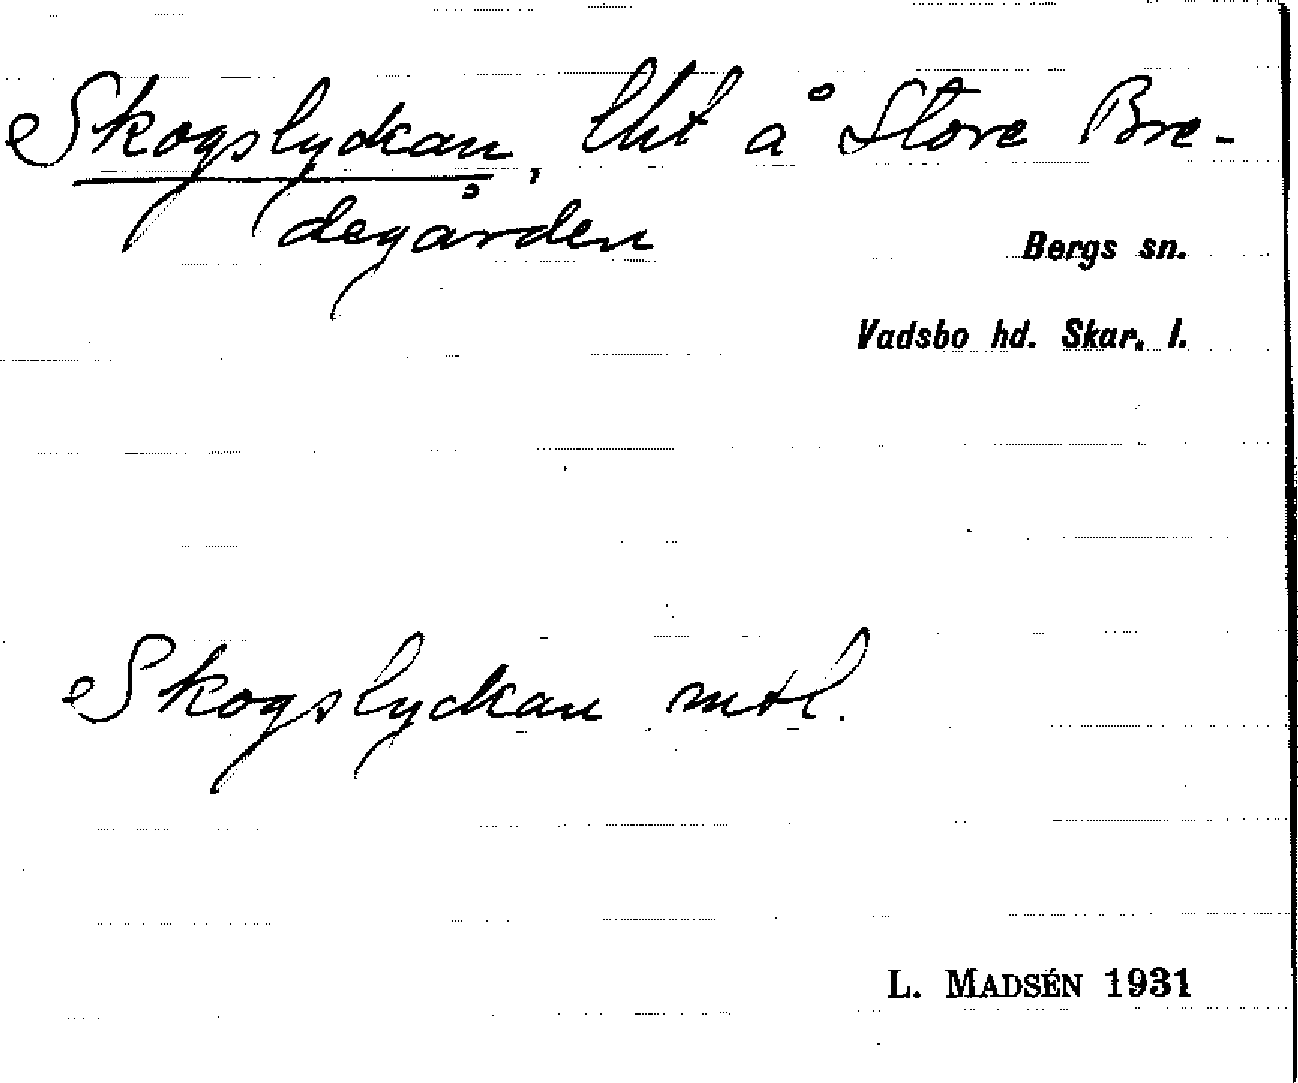 Skogslyckan, lht å Store Bre-
degården
Bergs sn.
Vadsbo hd. Skar. l.
Skogslyckan mtl.
L. MADSÉN 1931